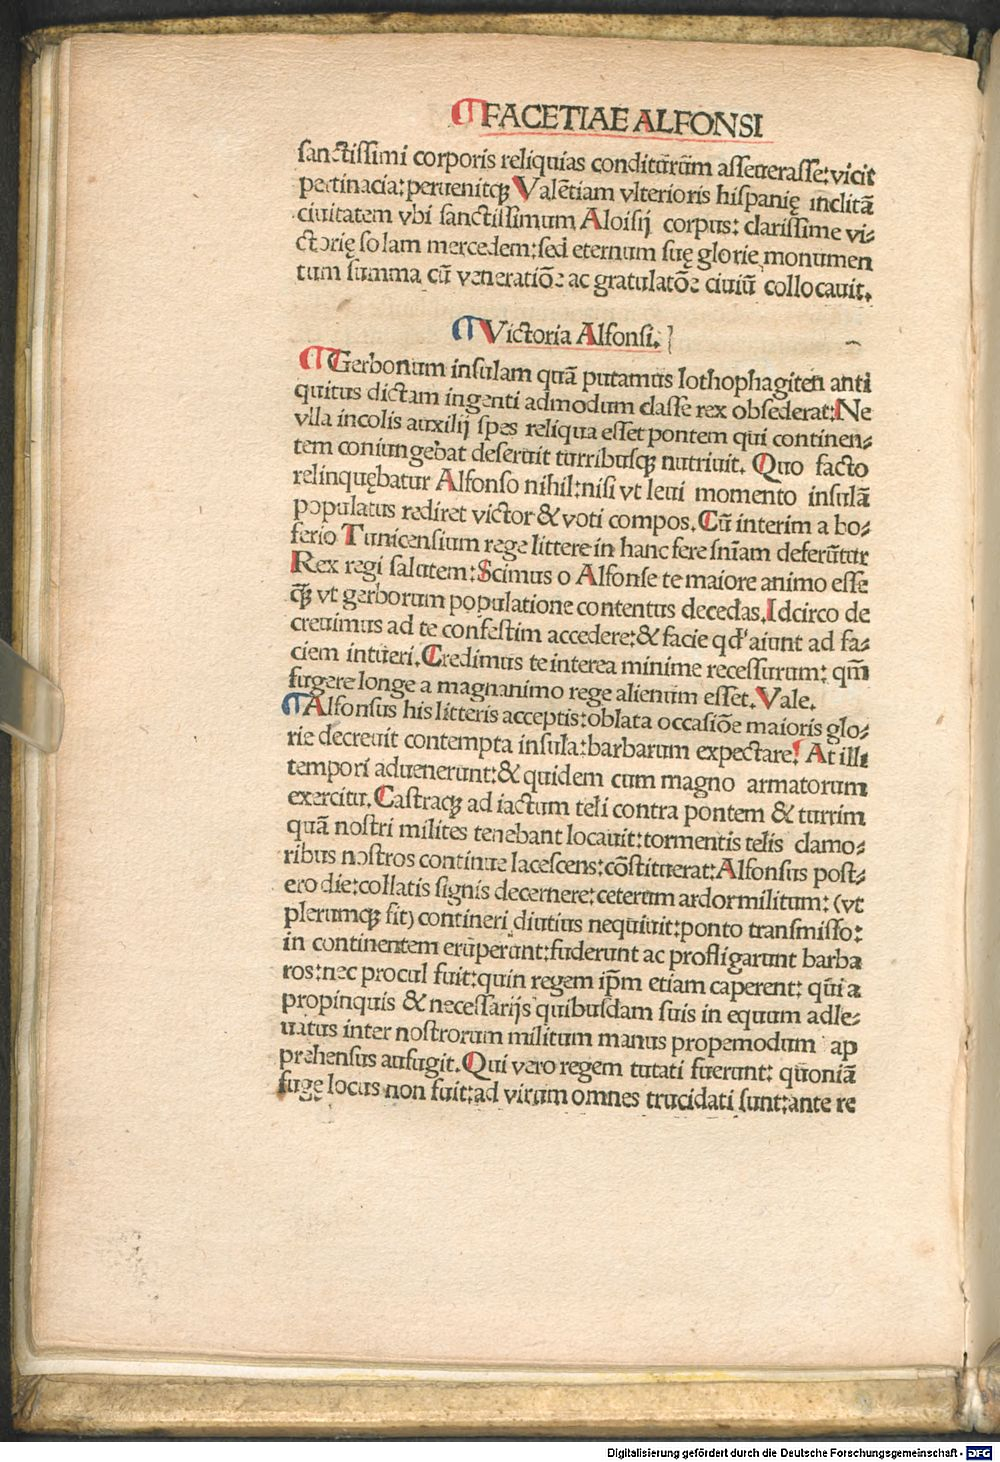 FACETIAE ALFONSI
sanctissimi corporis reliquias conditurũm asseuerasse: vicit
pertinacia: peruenitqꝫ Valẽtiam vlterioris hispanię inclitã
ciuitatem vbi sanctissimum Aloisij corpus: clarissime vi⸗
ctorię solam mercedem: sed eternum suę glorie monumen
tum summa cũ veneratiõe ac gratulatõe ciuiũ collocauit.
Victoria Alfonsi.
Gerbonum insulam quã putamus lothophagiten anti
quitus dictam ingenti admodum classe rex obsederat: Ne
vlla incolis auxilij spes reliqua esset pontem qui continen⸗
tem coniungebat deseruit turribusqꝫ nutriuit. Quo facto
relinquębatur Alfonso nihil: nisi vt leui momento insulã
populatus rediret victor & voti compos. Cũ interim a bo⸗
ferio Tunicensium rege littere in hanc fere sñiam deferũtur
Rex regi salutem: Scimus o Alfonse te maiore animo esse
qꝫ vt gerborum populatione contentus decedas. Idcirco de
creuimus ad te confestim accedere: & facie qđ aiunt ad fa⸗
ciem intueri. Credimus te interea minime recessurum: qm̃
fugere longe a magnanimo rege alienum esset. Vale.
Alfonsus his litteris acceptis: oblata occasiõe maioris glo⸗
rie decreuit contempta insula: barbarum expectare. At illi
tempori aduenerunt: & quidem cum magno armatorum
exercitu. Castraqꝫ ad iactum teli contra pontem & turrim
quã nostri milites tenebant locauit: tormentis telis clamo⸗
ribus nostros continue lacescens: cõstituerat: Alfonsus post⸗
ero die: collatis signis decernere: ceterum ardor militum: (vt
plerumqꝫ fit) contineri diutius nequiuit: ponto transmisso:
in continentem erũperunt: fuderunt ac profligarunt barba
ros: nec procul fuit: quin regem ip̃m etiam caperent: qui a
propinquis & necessarijs quibusdam suis in equum adle⸗
uatus inter nostrorum militum manus propemodum ap
prehensus aufugit. Qui vero regem tutati fuerunt: quoniã
fuge locus non fuit: ad virum omnes trucidati sunt: ante re
Digitalisierung gefördert durch die Deutsche Forschungsgemeinschaft - DFG